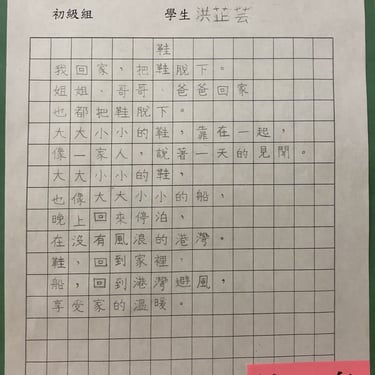 初級組 學生 洪芷芸
鞋
我回家，把鞋脫下。
姐姐、哥哥、爸爸回家
也都把鞋脫下。
大大小小的鞋，靠在一起，
像一家人，說著一天的見聞。
大大小小的鞋，
也像大大小小的船，
晚上回來停泊，
在沒有風浪的港灣。
鞋，回到家裡，
船，回到港灣避風，
享受家的溫暖。